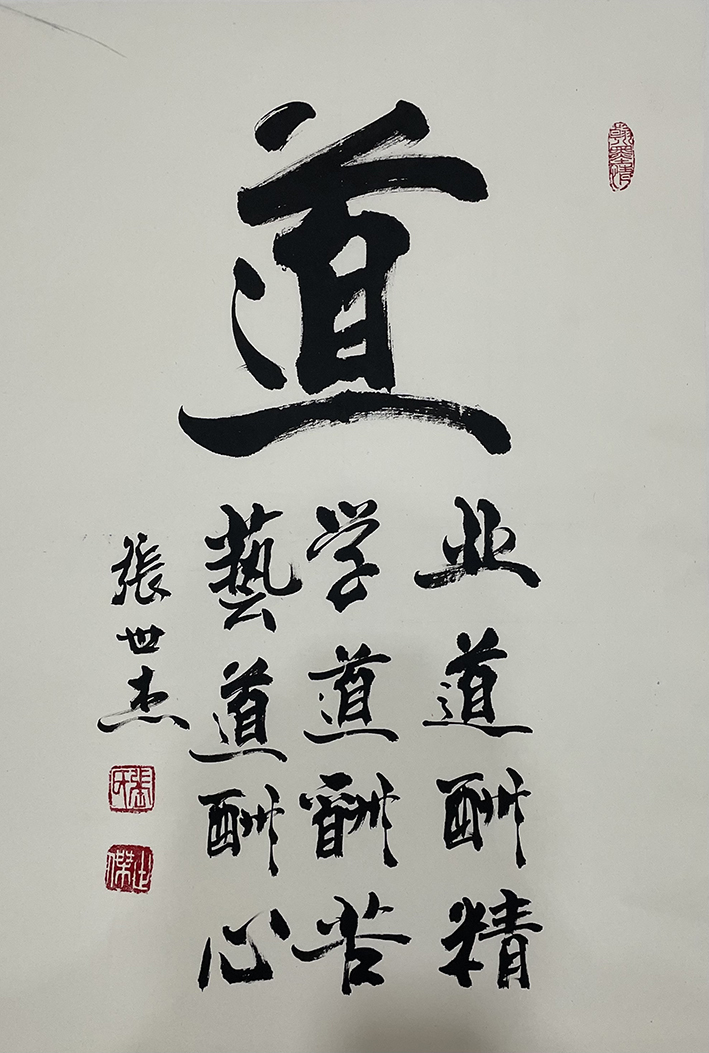 道
业道酬精
学道酬苦
藝道酬心
張世杰
張氏
世傑